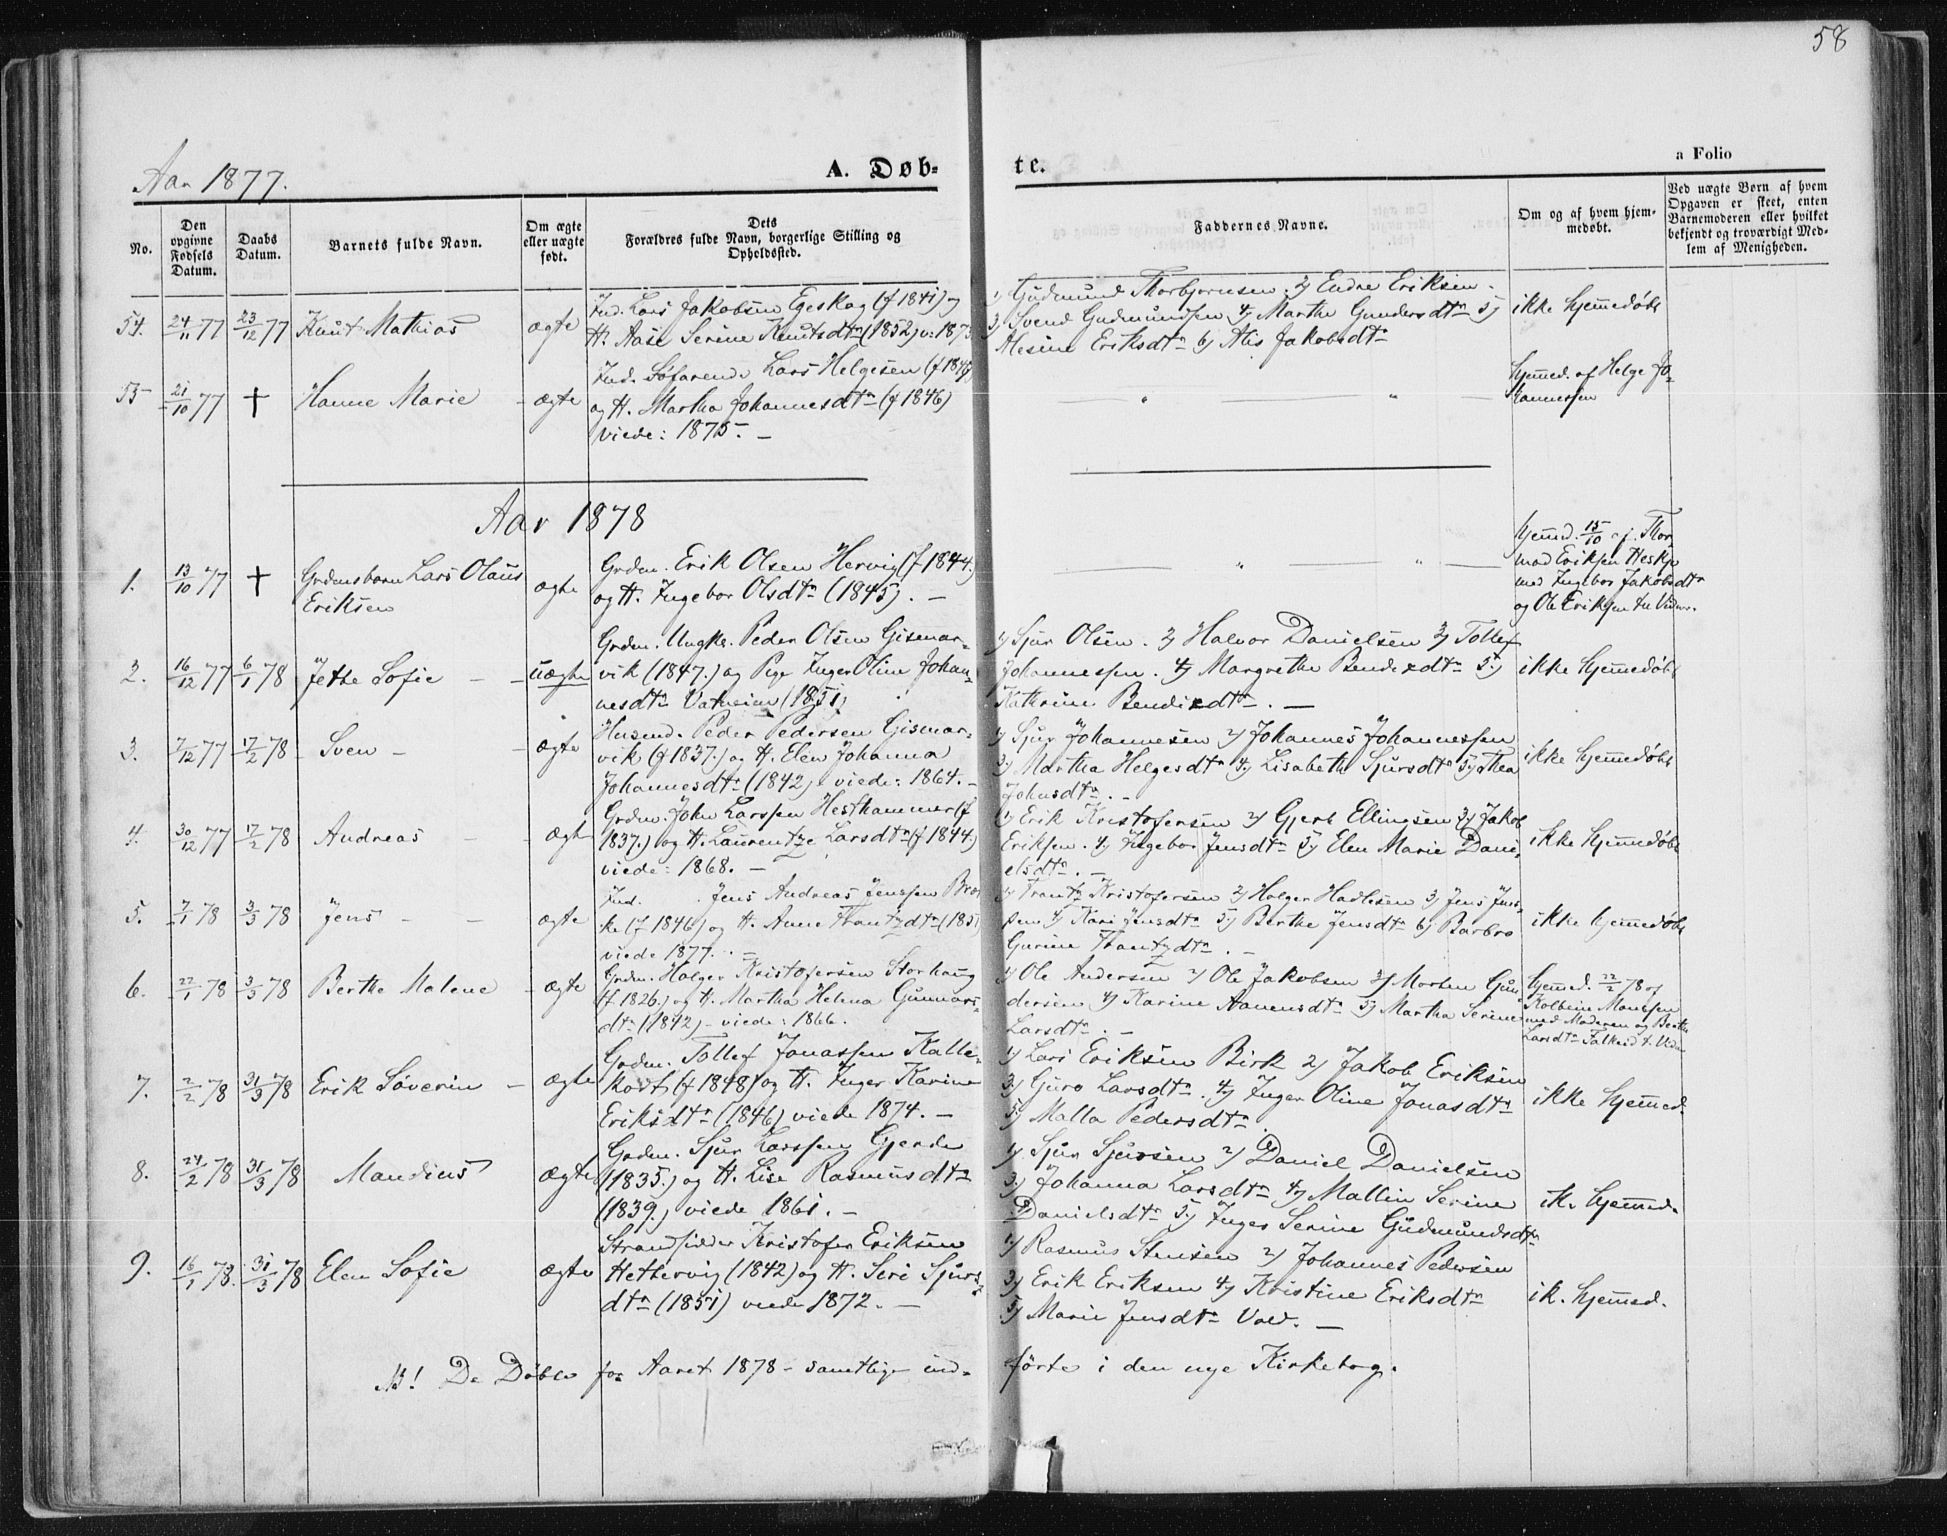 58
Aar 1877.
A. Døb-
te.
a Folio
No.
Den opgivne Fødsels Datum.
Daabs Datum.
Barnets fulde Navn.
Om ægte eller uægte født.
Dets Forældres fulde Navn, borgerlige Stilling og Opholdssted.
Faddernes Navne.
Om og af hvem hjem-
medøbt.
Ved uægte Børn af hvem
Opgaven er skeet, enten
Barnemoderen eller hvilket
bekjendt og troværdigt Med-
lem af Menigheden.
54. 24/11 77 23/12 77 Knut Mathias ægte
Ind. Lars Jakobsen Egeskog (f 1841) og
H. Aase Serine Knutsdtr (1852) v: 1873
1) Gudmund Thorbjornsen. 2) Endre Eriksen.
3) Svend Gudmundsen 4) Marthe Gundersdtr 5)
Alesine Eriksdtr 6) Alis Jakobsdtr
ikke hjemedøbt
55 21/10 77 † Hanne Marie - ægte
Ind. Søfarende Lars Helgesen (f 1849)
og H. Martha Johannesdtr (f 1846)
viede: 1875. -
— " — " —
hjemed. af Helge Jo-
hannessen
Aar 1878
1. 13/10 77 † Grdmsbarn Lars Olaus
Eriksen
ægte
Grdm. Erik Olsen Hervig (f 1844.)
og H. Ingebor Olsdtr (1845). -
— " — " —
hjemd. 15/10 af Thor-
mod Eriksen Heskje
med Ingebor Jakobsdtr
og Ole Eriksen til Vidner.
2. 16/12 77 6/1 78 Jette Sofie - - uægte
Grdm. Ungk. Peder Olsen Gismar-
vik (1847.) og Pige Inger Oline Johan-
nesdtr Vatneim (1851)
1) Sjur Olsen. 2) Halvor Danielsen 3) Tollef
Johannessen. 4) Margrethe Bendixdtr 5)
Kathrine Bendixdtr. -
ikke hjemedøbt
3. 7/12 77 17/2 78 Sven - - ægte
Husmd. Peder Pedersen Gismar-
vik (f 1837.) og H. Elen Johanna
Johannesdtr (1842) viede: 1864. -
1) Sjur Johannesen 2) Johannes Johannessen
3) Martha Helgesdtr 4) Lisabeth Sjursdtr 5) Thea
Johnsdtr. -
ikke hjemedøbt
4. 30/12 77 17/2 78 Andreas - - ægte
Grdm. John Larssen Hesthammer (f
1837.) og H. Laurentze Larsdtr (f 1844)
viede: 1868. -
1) Erik Kristofersen 2) Gjert Ellingsen 3) Jakob
Eriksen. 4) Ingebor Jensdtr 5) Elen Marie Dani-
elsdtr. -
ikke hjemedøbt
5. 7/1 78 3/3 78 Jens - - ægte
Ind. Jens Andreas Jenssen Bræk-
ke (f 1846) og H. Anne Frantzdtr (1851)
viede 1877. -
1) Frantz Kristofersen 2) Holger Hadlesen 3) Jens Jens-
sen 4) Kari Jensdtr 5) Berthe Jensdtr 6) Barbro
Gurine Frantzdtr. -
ikke hjemedøbt
6. 22/1 78 3/3 78 Berthe Malene - ægte
Grdm. Holger Kristofersen Storhaug
(f 1826.) og H. Martha Helena Gunnars-
dtr (1842) - viede: 1866.
1) Ole Andersen 2) Ole Jakobsen 3) Morten Gun-
dersen 4) Karine Aanensdtr 5) Martha Serine
Larsdtr. -
hjemed. 22/2 78 af
Kolbeine Monssen
med Moderen og Berthe
Larsdtr Falkeid t. Vidn.
7. 2/2 78 31/3 78 Erik Søverin - ægte
Grdm. Tollef Jonassen Kalle-
kodt (f 1848) og H. Inger Karine
Eriksdtr (1846) viede 1874. -
1) Lars Eriksen Birk 2) Jakob Eriksen
3) Guro Larsdtr. 4) Inger Oline Jonasdtr
5) Malla Pedersdtr.
ikke hjemed.
8. 24/2 78 31/3 78 Mandius ægte
Grdm. Sjur Larssen Gjerde
(1835.) og H. Lise Rasmusdtr
(1839.) viede 1861. -
1) Sjur Sjursen 2) Daniel Danielsen
3) Johanna Larsdtr 4) Mallin Serine
Danielsdtr 5) Inger Serine Gudmundsdtr
ik. hjemed.
9. 16/1 78. 31/3 78 Elen Sofie ægte
Strandsidder Kristofer Eriksen
Hettervig (1842) og H. Seri Sjurs-
dtr (1851) viede 1872. -
1) Rasmus Stensen 2) Johannes Pedersen
3) Erik Eriksen 4) Kristine Eriksdtr
5) Marie Jensdtr Vold. -
ik. hjemed.
NB! De Døbte for Aaret 1878 - samtlige ind-
førte i den nye Kirkebog.